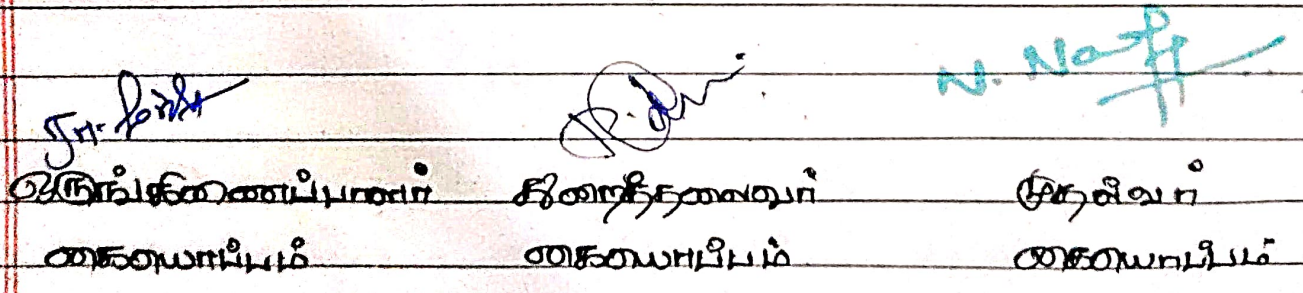 N. Na
ஒருங்கிணைப்பாளர் துறைத்தலைவர் முதல்வர்
கையொப்பம் கையொப்பம் கையொப்பம்